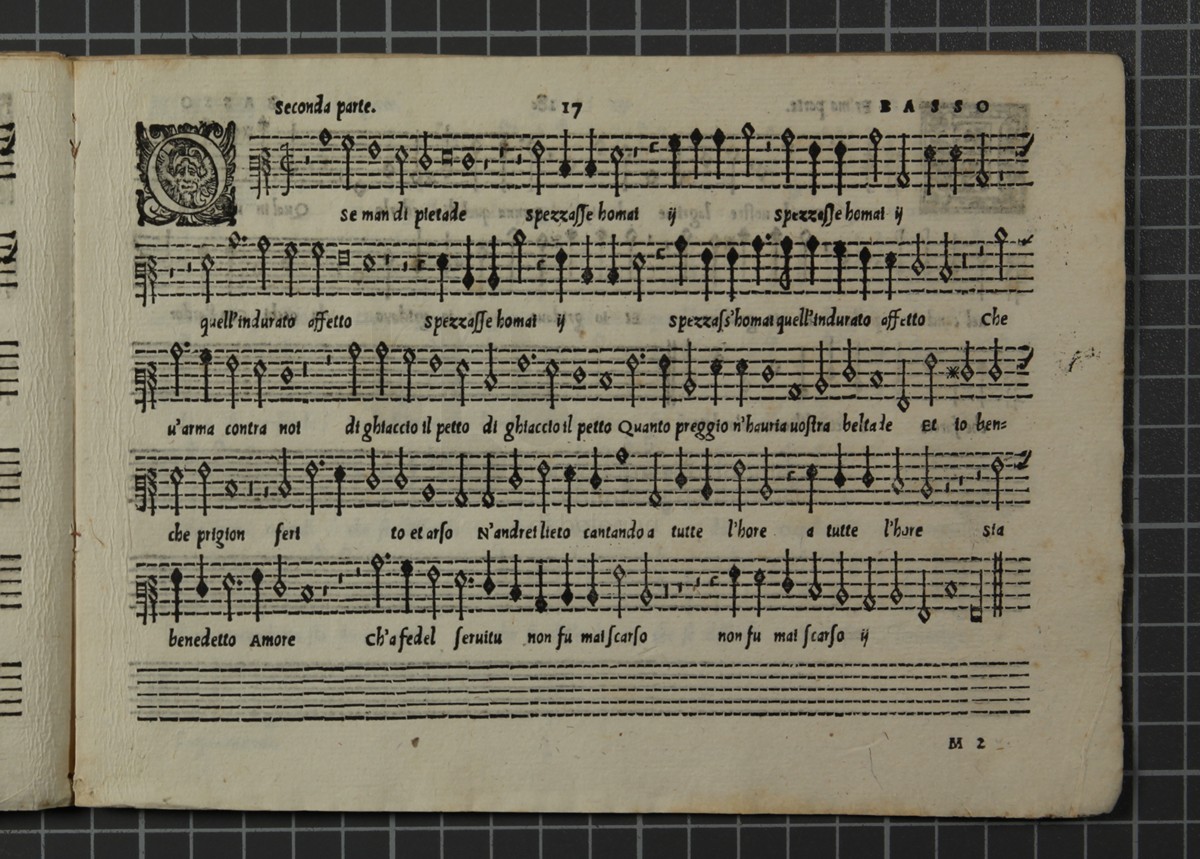 Seconda parte. 17 BASSO
O se man di pietade spezzasse homai ij spezzasse homai ij
quell'indurato affetto spezzasse homai ij spezzass'homai quell'indurato affetto Che
u'arma contra noi di ghiaccio il petto di ghiaccio il petto Quanto preggio n'hauria uostra beltade Et io ben=
che prigion feri to et arso N'andrei lieto cantando a tutte l'hore a tutte l'hore sia
benedetto Amore Ch'a fedel seruitu non fu mai scarso non fu mai scarso ij
M 2